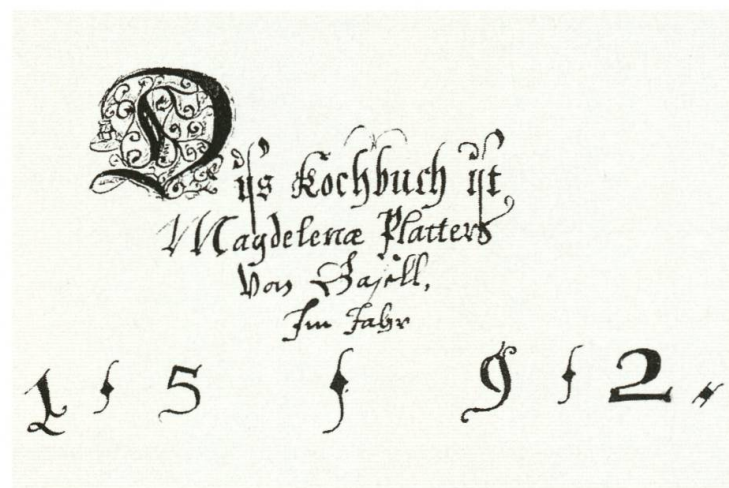 Diſs Kochbuch iſt
Magdelenæ Platters
Von Baſell,
Im Jahr
1 5 9 2